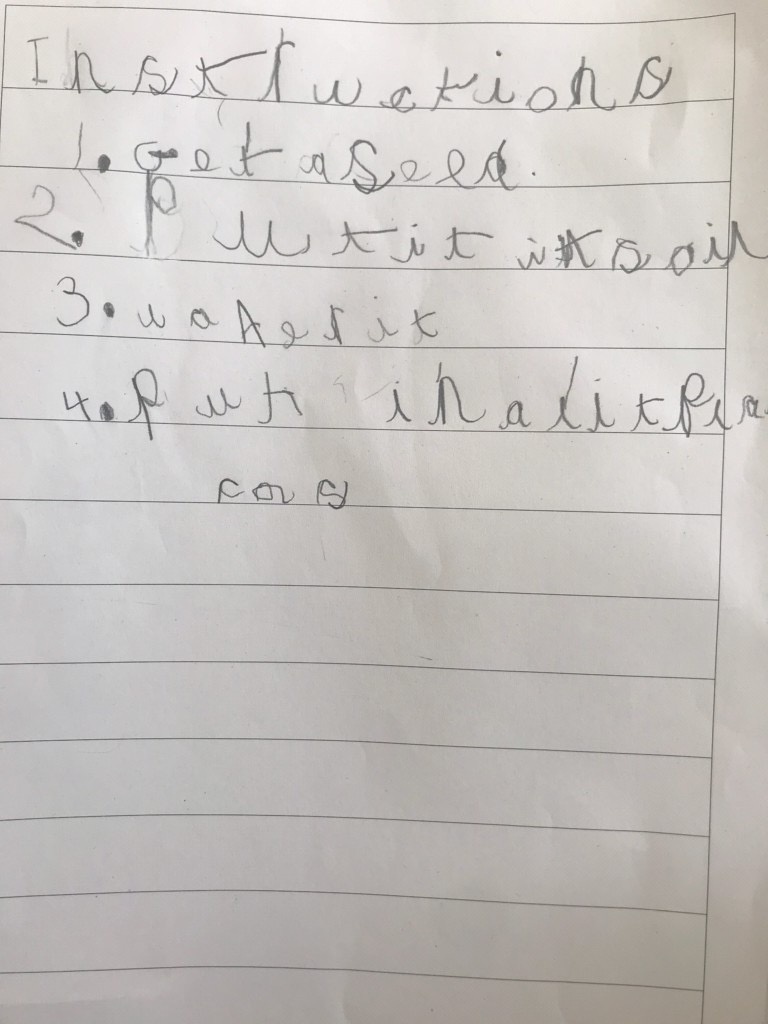 Instructions
1. Get a Seed.
2. Put it in soil
3. water it
4. Put in a lit pla
cas